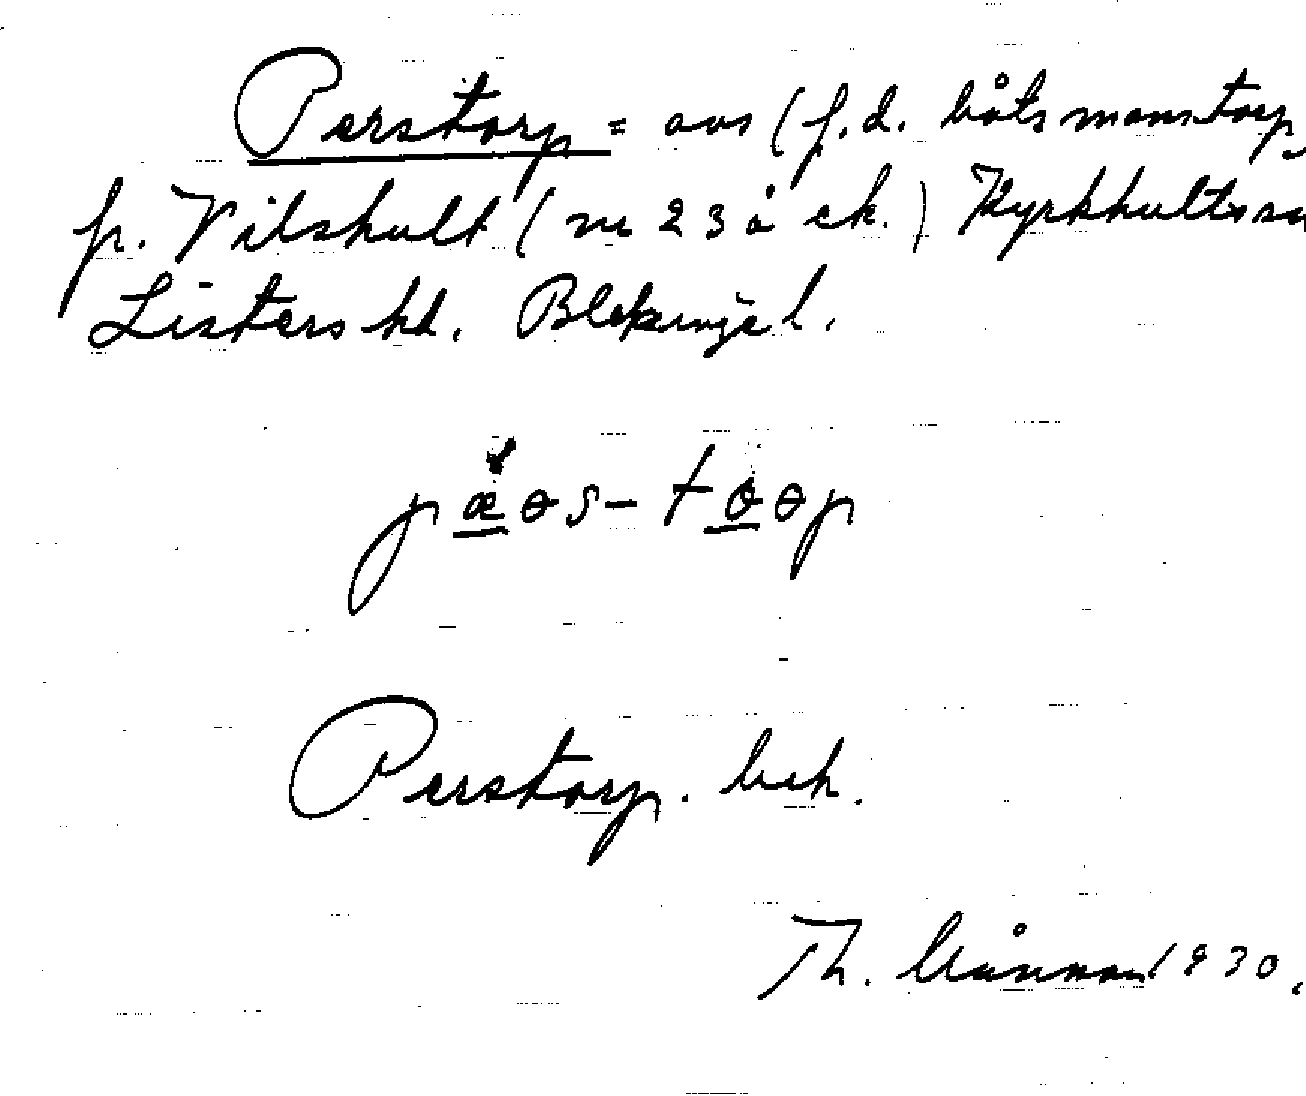 Perstorp = avs (f.d. båtsmanstorp,
p. Vilshult (nr 23 å ek.) Kyrkhults sn
Listers hd. Blekinge l.
pæɵs-tɵɵp
Perstorp. bek.
Th. 1930.